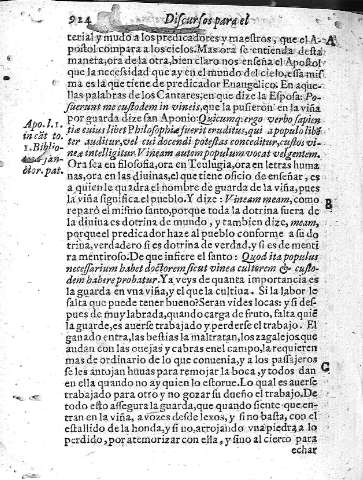 924 Discursos para el
terial y mudo a los predicadores y maestros, que el A-
postol compara a los cielos. Mas ora se entienda desta
manera, ora de la otra, bien claro nos enseña el Apostol
que la necesidad que ay en el mundo del cielo, essa mis
ma es la que tiene de predicador Euangelico. En aque-
llas palabras de los Cantares, en que dize la Esposa: Po-
suerunt me custodem in vineis, que la pusieron en la viña
por guarda dize san Aponio: Quicumq; ergo verbo sapien
tiæ cuius libet Philosophiæ fuerit eruditus, qui a populo libẽ
ter auditur, vel cui docendi potestas conceditur, custos vi-
neæ intelligitur. Vineam autem populum vocat vel gentem.
Ora sea en filosofia, ora en Teulugia, ora en letras huma
nas, ora en las diuinas, el que tiene oficio de enseñar, es
a quien le quadra el nombre de guarda de la viña, pues
la viña significa el pueblo. Y dize: Vineam meam, como
reparò el mismo santo, porque toda la dotrina fuera de
la diuina es dotrina de mundo, y tambien dize, meam,
porque el predicador haze al pueblo conforme a su do
trina, verdadero si es dotrina de verdad, y si es de menti
ra mentiroso. De que infiere el santo: Quod ita populus
necessarium habet doctorem sicut vinea cultorem & custo-
dem habere probatur. Ya veys de quanta importancia es
la guarda en vna viña, y el que la cultiua. Si la labor le
falta que puede tener bueno? Seran vides locas: y si des-
pues de muy labrada, quando carga de fruto, falta quiẽ
la guarde, es auerse trabajado y perderse el trabajo. El
ganado entra, las bestias la maltratan, los zagalejos que
andan con las ouejas y cabras en el campo, la requieren
mas de ordinario de lo que conuenia, y a los passajeros
se les antojan huuas para remojar la boca, y todos dan
en ella quando no ay quien lo estorue. Lo qual es auerse
trabajado para otro y no gozar su dueño el trabajo. De
todo esto assegura la guarda, que quando siente que en-
tran en la viña, a vozes desde lexos, y si no basta, con el
estallido de la honda, y si no, arrojando vna piedra a lo
perdido, por atemorizar con ella, y sino al cierto para
echar
Apo. l. 1.
in cãt to.
1. Biblio-
san-
ctor. pat.
A
B
C